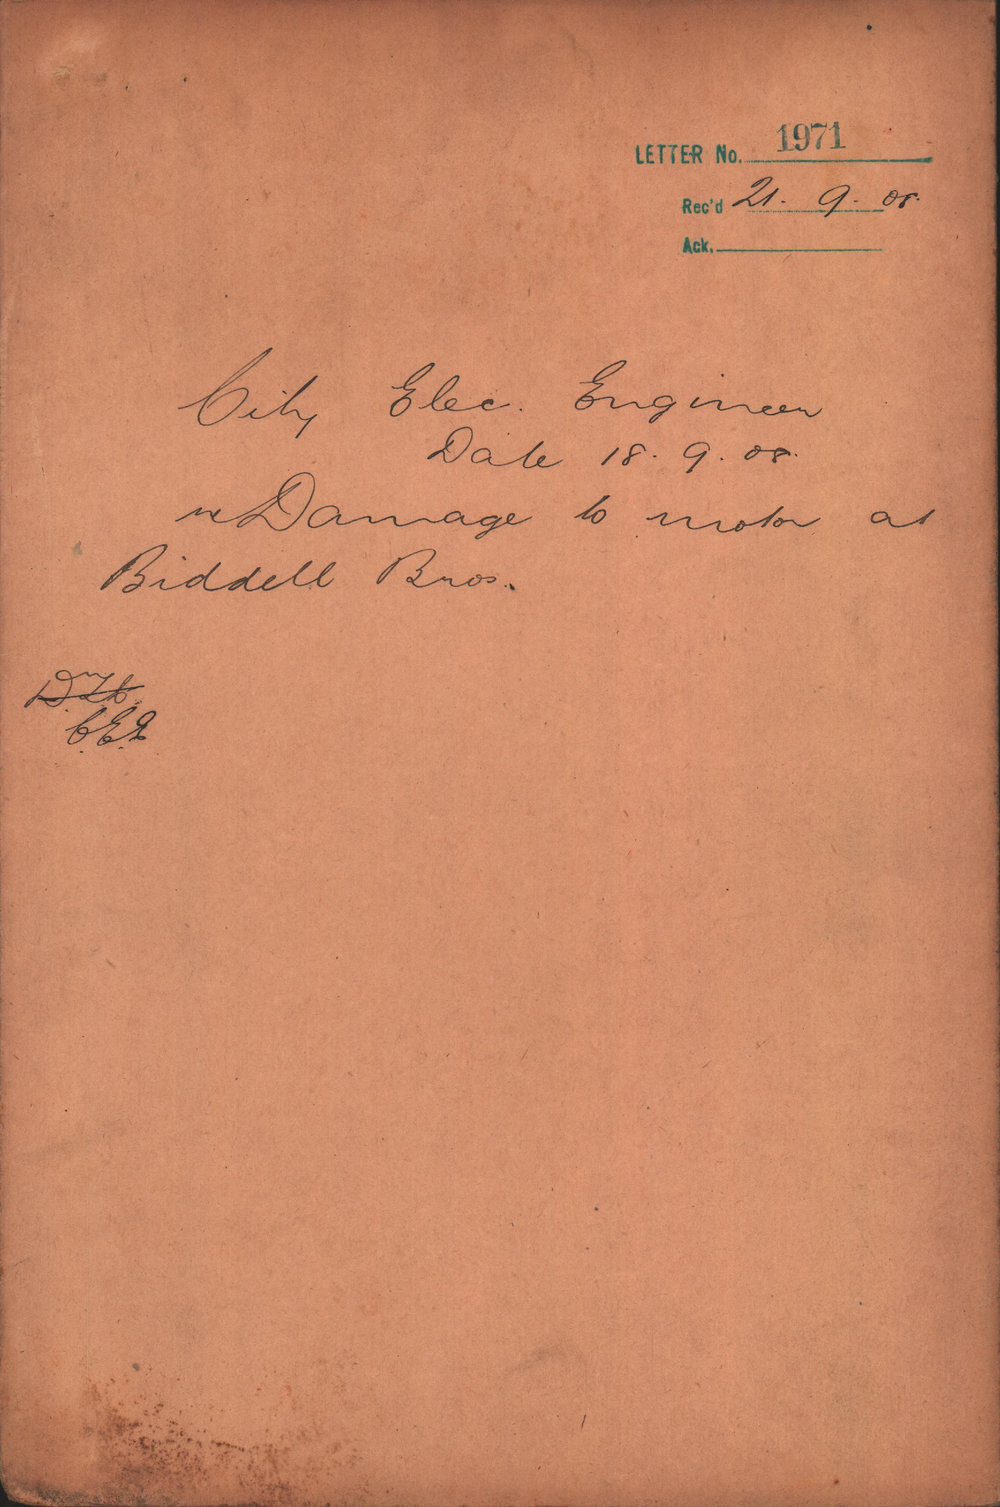 LETTER No. 1971
Rec'd 21. 9. 08.
Ack.
City Elec. Engineer
Date 18. 9. 08.
re Damage to motor at
Biddell Bros.
C.E.E